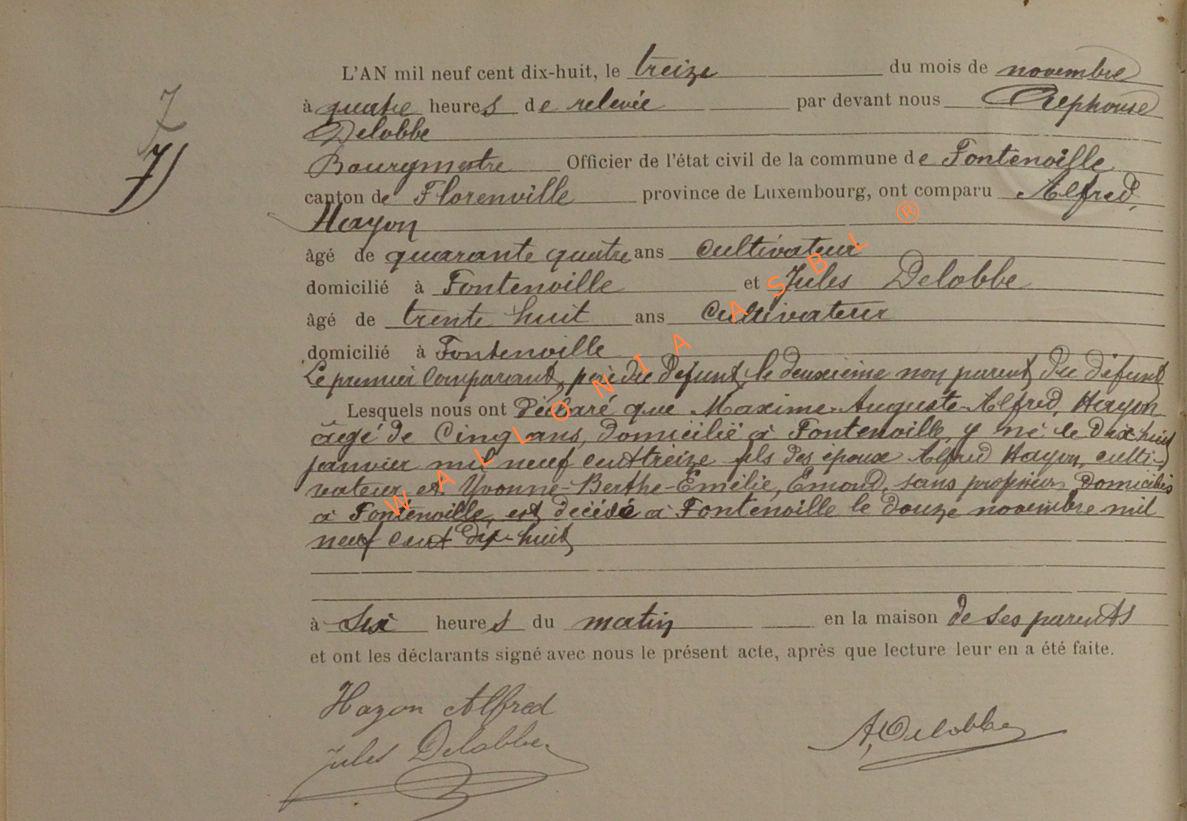 7
7)
L'AN mil neuf cent dix-huit, le treize du mois de novembre
à quatre heures de relevée par devant nous Alphonse
Delobbe
Bourgmestre Officier de l'état civil de la commune de Fontenoille
canton de Florenville province de Luxembourg, ont comparu Alfred,
Hayon
âgé de quarante quatre ans cultivateur
domicilié à Fontenoille et Jules Delobbe
âgé de trente huit ans Cultivateur
domicilié à Fontenoille
Le premier Comparant, père du défunt, le deuxième non parent du défunt
Lesquels nous ont déclaré que Maxime-Auguste-Alfred, Hayon
âgé de Cinq ans, domicilié à Fontenoille, y né le dix huit
janvier mil neuf cent treize fils des époux Alfred Hayon, culti-
vateur et Yvonne-Berthe-Emélie, Emond, sans profession domiciliés
à Fontenoille, est décédé à Fontenoille le douze novembre mil
neuf cent dix-huit
à six heures du matin en la maison de ses parents
et ont les déclarants signé avec nous le présent acte, après que lecture leur en a été faite.
Hayon Alfred
Jules Delobbe
A, Delobbe
WALLONIA ASBL ®